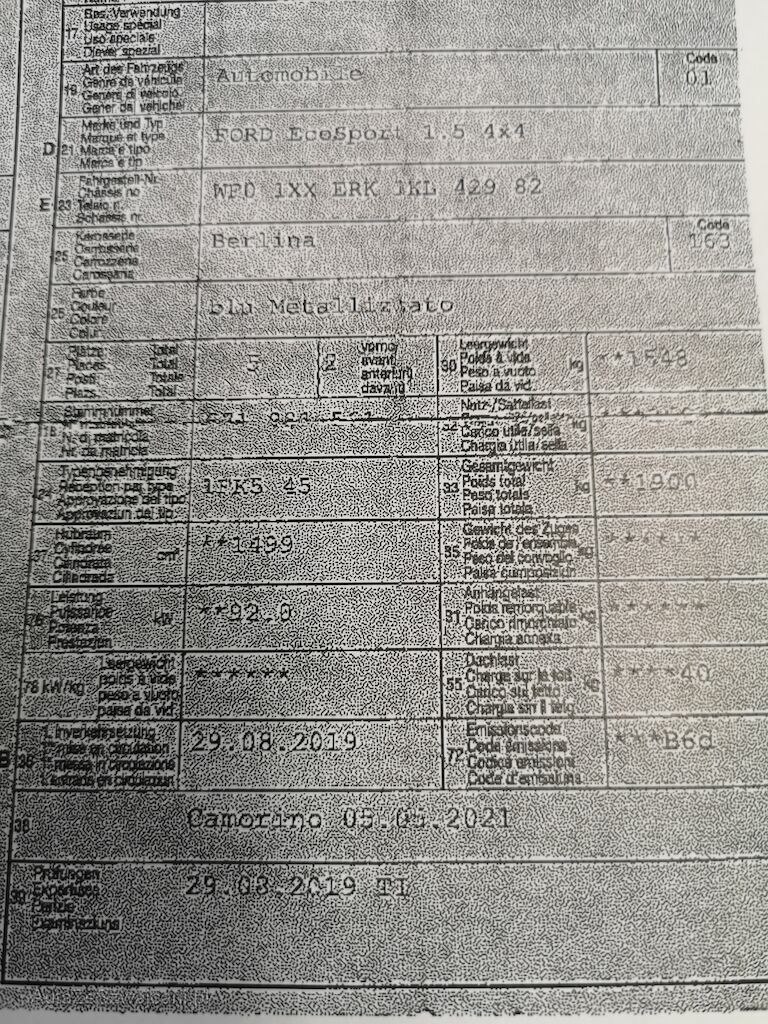 17 Bes. Verwendung
Usage spécial
Uso speciale
Diever spezial
19 Art des Fahrzeugs Automobile Code
Genre de véhicule 01
Genere di veicolo
Gener da vehichel
D 21 Marke und Typ FORD EcoSport 1.5 4x4
Marque et type
Marca e tipo
Marca e tip
E 23 Fahrgestell-Nr. WF0 1XX ERK 1KL 429 82
Châssis no
Telaio n.
Schassis nr.
25 Karosserie Berlina Code
Carrosserie 163
Carrozzeria
Carossaria
26 Farbe blu Metallizzato
Couleur
Colore
Colur
27 Plätze Total 5 2 vorne
Places Total avant
Posti Totale anteriori
Plazs Total davant
30 Leergewicht kg **1548
Poids à vide
Peso a vuoto
Paisa da vid
18 Stammnummer
N. di matricola
Nr. da matricla
32 Nutz-/Sattellast kg
Carico utile/sella
Chargia utila/sella
24 Typengenehmigung 1FK5 45
Réception par type
Approvazione del tipo
Approvaziun dal tip
33 Gesamtgewicht kg **1900
Poids total
Peso totale
Paisa totala
37 Hubraum cm³ **1499
Cylindrée
Cilindrata
Cilindrada
35 Gewicht des Zuges kg ******
Poids de l'ensemble
Peso del convoglio
Paisa cumposiziun
76 Leistung kW **92.0
Puissance
Potenza
Prestaziun
31 Anhängelast kg ******
Poids remorquable
Carico rimorchiato
Chargia annexa
78 kW/kg Leergewicht ******
poids à vide
peso a vuoto
paisa da vid
55 Dachlast kg ****40
Charge sur le toit
Carico sul tetto
Chargia sin il tetg
B 36 1. Inverkehrsetzung 29.08.2019
1re mise en circulation
1a messa in circolazione
1. entrada en circulaziun
72 Emissionscode ***B6d
Code émissions
Codice emissioni
Code d'emissiuns
38 Camorino 05.05.2021
39 Prüfungen 29.08.2019 TI
Expertises
Perizie
Examinaziuns